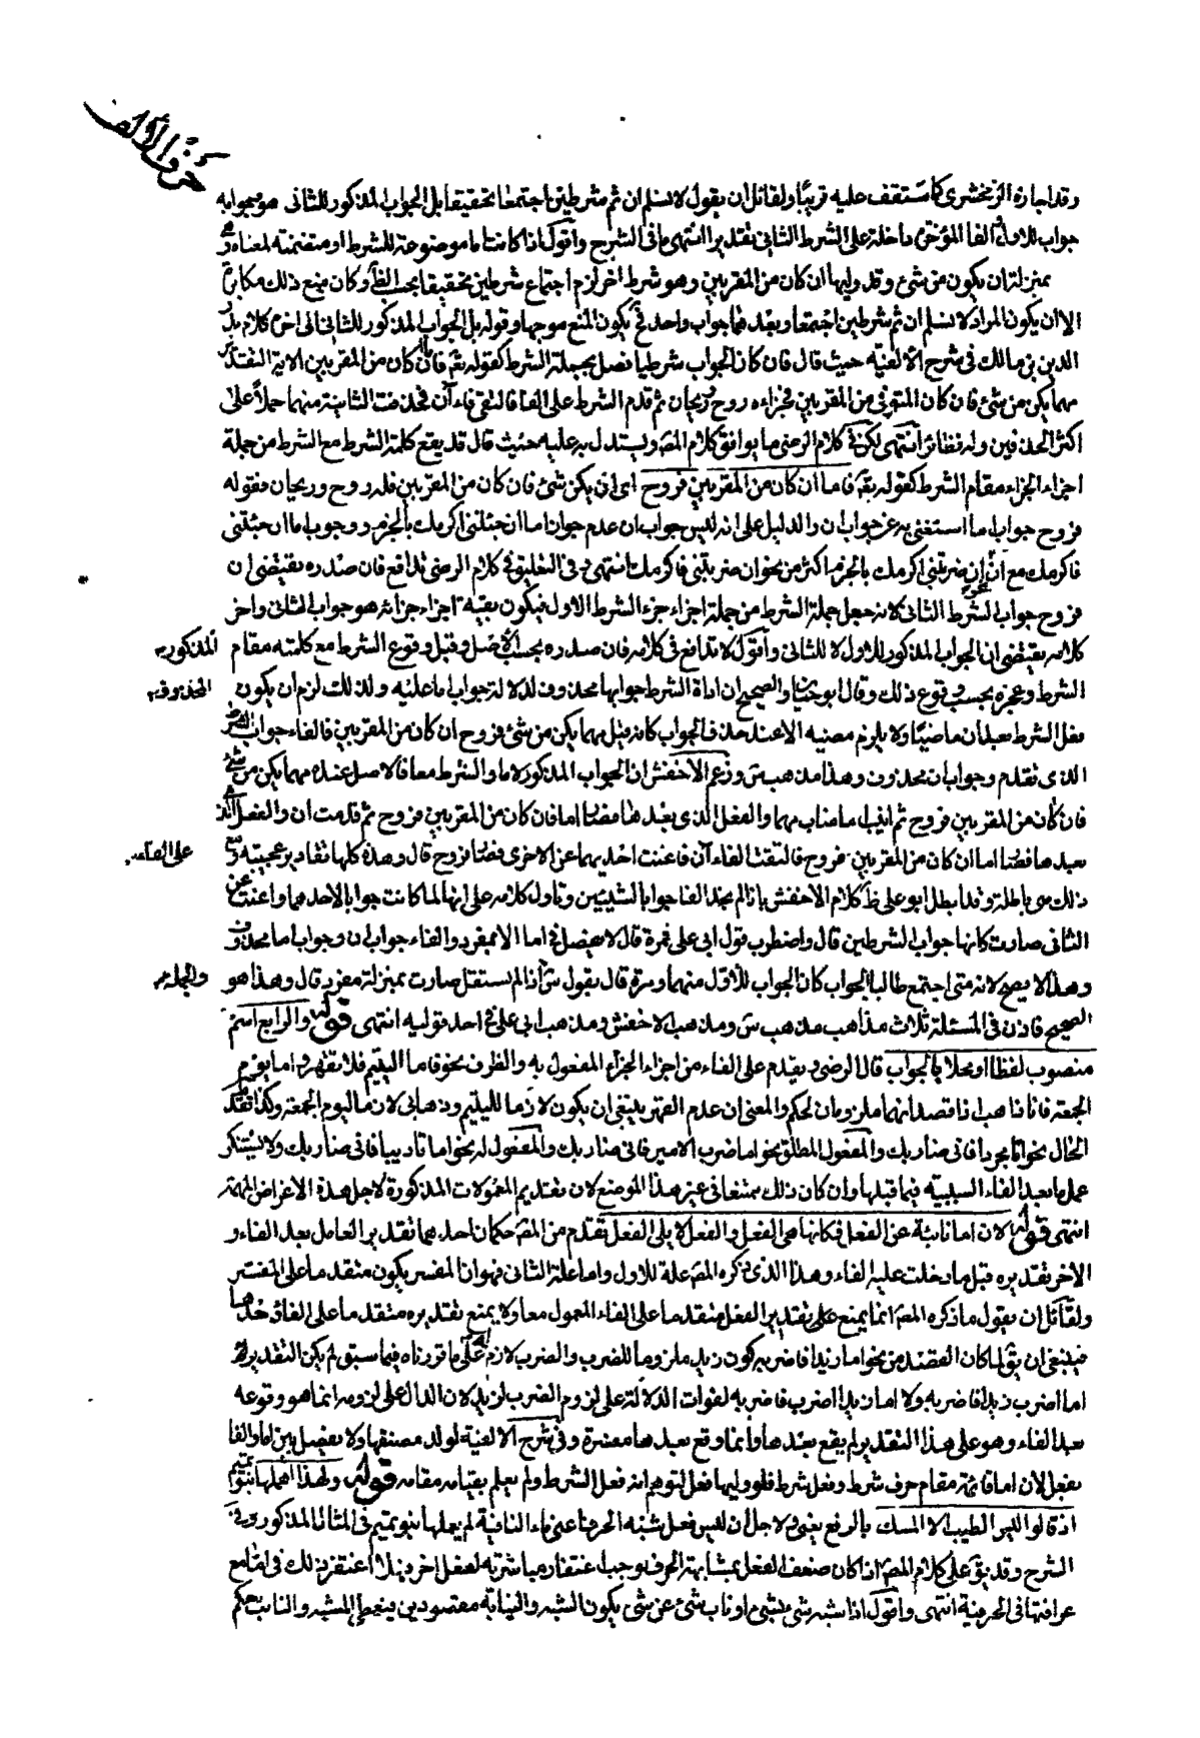 حرف الالف
وقد اجازه الزمخشرى كما ستقف عليه قريبا ولقائل ان يقول لا نسلم ان ثم شرطين اجتمعا تحقيقا بل الجواب المذكور للثانى هو وجوابه
جواب للاول الفا المؤخر داخلة على الشرط الثانى تقديرا انتهى ما فى الشرح واقول اذا كانت اما موضوعة للشرط او متضمنة لمعناه
بمنزلة ان يكون من شئ وقد وليها ان كان من المقربين وهو شرط اخر لزم اجتماع شرطين تحقيقا وكان منع ذلك مكابرة
الا ان يكون المراد لا نسلم ان ثم شرطين اجتمعا وبعدهما جواب واحد يكون المنع موجها وقوله بل الجواب المذكور للثانى الى اخره كلام بدر
الدين بن مالك فى شرح الالفية حيث قال فان كان الجواب شرطيا فصل بجملة الشرط كقوله تع فاما ان كان من المقربين الاية التقدير
مهما يكن من شئ فان كان المتوفى من المقربين فجزاءه روح وريحان ثم قدم الشرط على الفا فالتقى فاءان فحذفت الثانية منهما حملا على
اكثر الحذفين وله نظائر انتهى لكن فى كلام الرضى ما يوافق كلام المص ويستدل به عليه حيث قال قد يقع كلمة الشرط مع الشرط من جملة
اجزاء الجزاء مقام الشرط كقوله تع فاما ان كان من المقربين فروح اى ان يكن شئ فان كان من المقربين فله روح وريحان فقوله
فروح جواب اما استغنى به عن جواب ان والدليل على انه ليس جواب ان عدم جواز اما ان جئتنى اكرمك بالجزم ووجوب اما ان جئتنى
فاكرمك مع ان نحو ان ضربتنى اكرمك بالجزم اكثر من نحو ان ضربتنى فاكرمك انتهى وفى التعليق فى كلام الرضى تدافع فان صدره يقتضى ان
فروح جواب الشرط الثانى لانه جعل جملة الشرط من جملة اجزاء جزء الشرط الاول فيكون بقية اجزاء جزائه هو جواب الثانى واخر
كلامه يقتضى ان الجواب المذكور للاول لا للثانى واقول لا تدافع فى كلامه فان صدره بحسب الاصل وقبل وقوع الشرط مع كلمته مقام المذكور
الشرط وعجزه بحسب وقوع ذلك وقال ابو حيان والصحيح ان اداة الشرط جوابها محذوف لدلالة جواب اما عليه ولذلك لزم ان يكون المحذوف
فعل الشرط بعد ان ماضيا ولا يلزم مضيه الا عند حذف الجواب كانه قيل مهما يكن من شئ فروح ان كان من المقربين فالفاء جواب الشرط
الذى تقدم وجواب ان محذوف وهذا مذهب س وزعم الاخفش ان الجواب المذكور لاما والشرط معا فالاصل عنده مهما يكن من شئ
فان كان من المقربين فروح ثم انيب اما مناب مهما والفعل الذى بعدها فصار اما فان كان من المقربين فروح ثم قدمت ان والفعل الذى
بعدها فصار اما ان كان من المقربين فروح فالتقت الفاءان فاغنت احديهما عن الاخرى فصار فروح قال وهذه كلها تقادير عجيبة على الفاء
ذلك هى باطلة وقد ابطل ابو على ظ كلام الاخفش بانا لم نجد الفا جوابا لشيئين وتاول كلامه على انها لما كانت جوابا لاحدهما واغنت عن
الثانى صارت كانها جواب الشرطين قال واضطرب قول ابى على فمرة قال لا يفصل اما الا بمفرد والفاء جواب ان وجواب اما محذوف
وهذا لا يصح لانه متى اجتمع طالبا الجواب كان الجواب للاول منهما ومرة قال بقول س اذ لم يستقل صارت بمنزلة مفرد قال وهذا هو والجملة
الصحيح فاذن فى المسئلة ثلاث مذاهب مذهب س ومذهب الاخفش ومذهب ابى على فى احد قوليه انتهى قوله والرابع اسم
منصوب لفظا او محلا بالجواب قال الرضى ويقدم على الفاء من اجزاء الجزاء المفعول به والظرف نحو فاما اليتيم فلا تقهر واما يوم
الجمعة فانا ذاهب اذا قصد انهما ملزومان لحكم والمعنى ان عدم القهر ينبغى ان يكون لازما لليتيم وذهابى لازما ليوم الجمعة وكذا تقدم
الحال نحو اما مجردا فانى ضاربك والمفعول المطلق نحو اما ضرب الامير فانى ضاربك والمفعول له نحو اما تاديبا فانى ضاربك ولا يستنكر
عمل ما بعد الفاء السببية فيما قبلها وان كان ذلك ممتنعا فى غير هذا الموضع لان تقديم المعمولات المذكورة لاجل هذه الاغراض المهمة
انتهى قوله لان اما نائبة عن الفعل فكانها هى الفعل والفعل لا يلى الفعل تقدم من المص حكمان احدهما تقدير العامل بعد الفاء و
الاخر تقديره قبل ما دخلت عليه الفاء وهذا الذى ذكره المص علة للاول واما علة الثانى فهو ان المفسر يكون متقدما على المفسر
ولقائل ان يقول ما ذكره المص انما يمنع على تقدير الفعل متقدما على الفاء المعمول معا ولا يمنع تقديره متقدما على الفا وحدها
فينبغى ان يق لما كان القصد من نحو اما زيدا فاضربه كون زيد ملزوما للضرب والضرب لازم له على ما قررناه فيما سبق لم يكن التقدير
اما اضرب زيدا فاضربه ولا اما زيدا اضرب فاضربه لفوات الدلالة على لزوم الضرب لزيد لان الدال على لزومه انما هو وقوعه
بعد الفاء وهو على هذا التقدير لم يقع بعدها وانما وقع بعدها مفسره وفى شرح الالفية لولد مصنفها ولا يفصل بين اما والفا
بفعل لان اما قائمة مقام حرف شرط وفعل شرط فلو وليها فعل لتوهم انه فعل الشرط ولم يعلم بقيامه مقامه قوله ولهذا اهملها بنو تميم
اذ قالوا ليس الطيب الا المسك بالرفع يعنى ولاجل ان ليس فعل شبه الحرف اعنى ماء النافية لم يعملها بنو تميم فى المثال المذكور وفى
الشرح وقد يق على كلام المص اذا كان ضعف الفعل بمشابهة الحرف يوجب اغتفار مباشرته لفعل اخر فهلا اغتفر ذلك فى اما مع
عراقتها فى الحرفية انتهى واقول اذا شبه شئ بشئ او ناب شئ عن شئ يكون الشبه والنيابة مقصودين فيعطى المشبه والنائب حكم